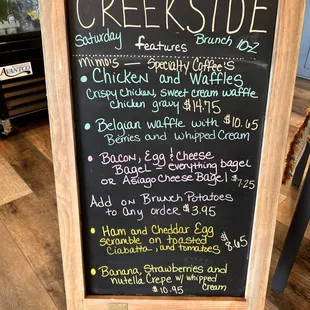 CREEKSIDE
Saturday Brunch 10-2
features
mimosa — Specialty Coffee's
Chicken and Waffles
Crispy chicken, sweet cream waffle
Chicken gravy $14.75
Belgian waffle with $10.65
Berries and whipped Cream
Bacon, Egg & Cheese
Bagel - everything bagel
OR Asiago Cheese Bagel $7.25
Add on Brunch Potatoes
to any order $3.95
Ham and Cheddar Egg
scramble on toasted $8.65
Ciabatta, and tomatoes
Banana, strawberries and
nutella Crepe w/ whipped
$10.95 cream
AVANTCO